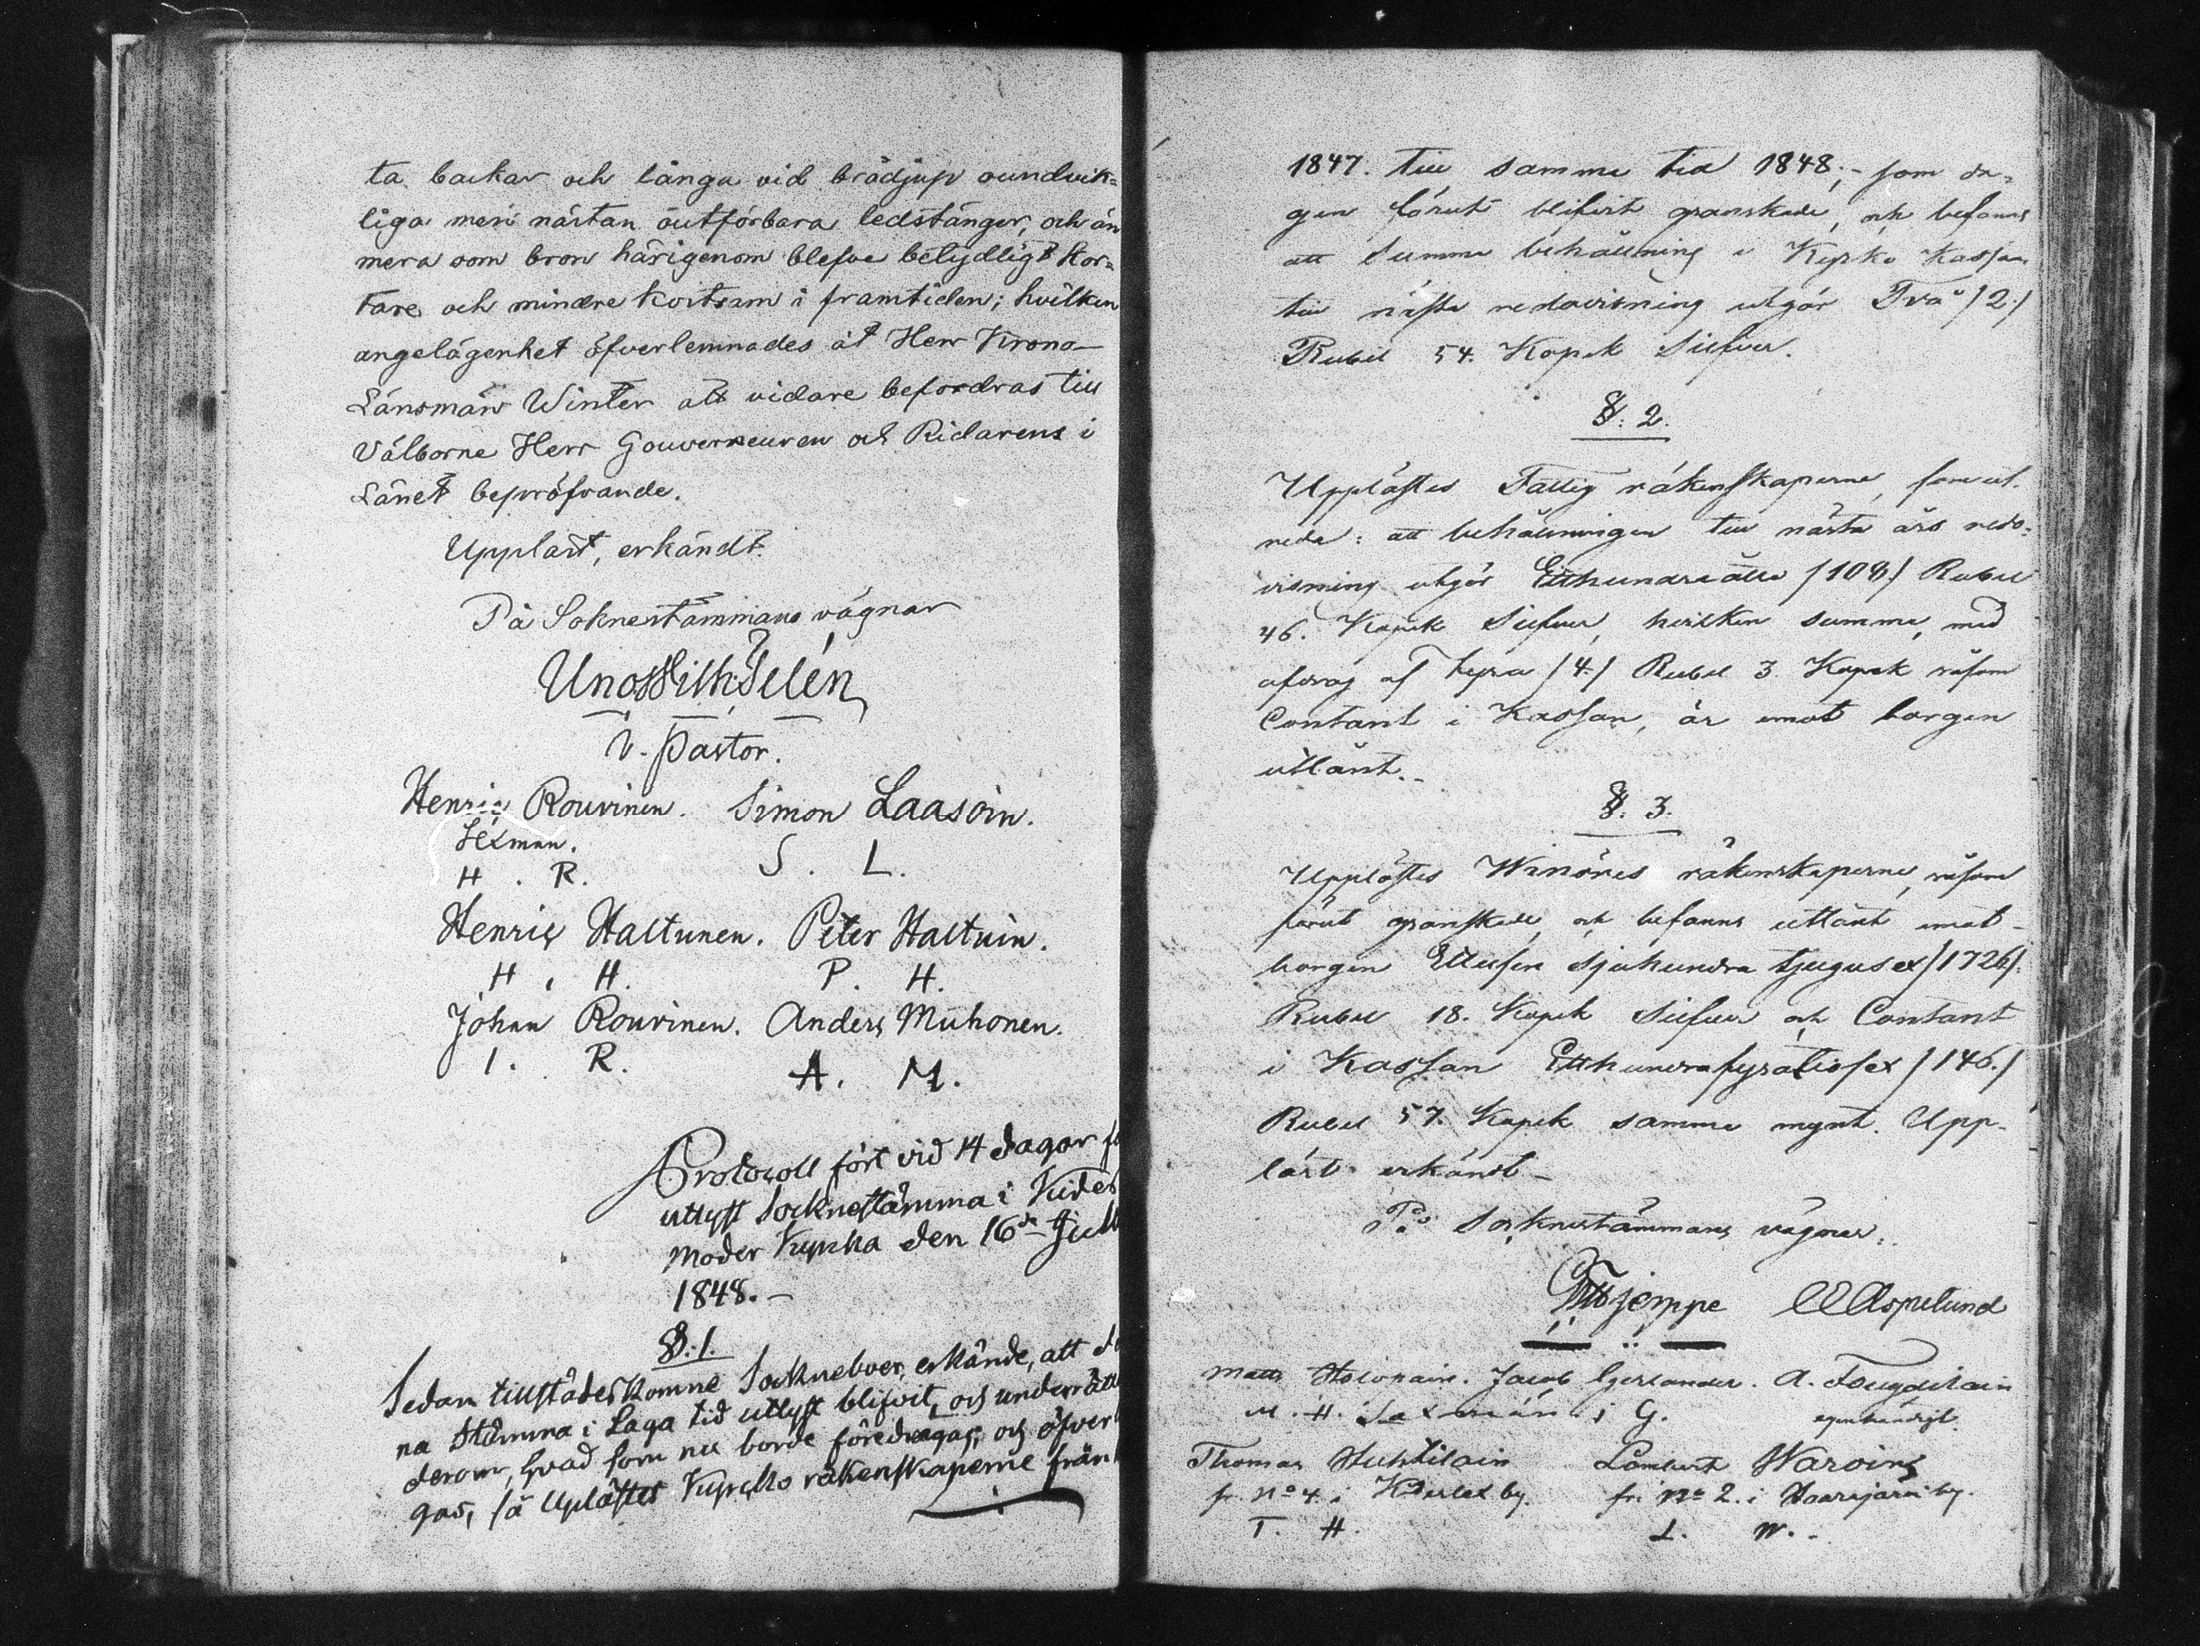 ta backar och långa vid brådjup oundvik=
liga men nästan outförbara ledstänger, och än
mera som bron härigenom blefve betydligt kor=
tare och mindre kostsam i framtiden; hvilken
angelägenhet öfverlemnades åt Herr Krono-
Länsman Winter att vidare befordras till
Välborne Herr Gouverneuren och Riddarens i
Länet bepröfvande.
Uppläst, erkändt.
På Soknestämmans vägnar
Uno Wilh: Telén
V. Pastor.
Henric Rouvinen. Simon Laasoin.
Sexman.
H . R. S . L.
Henric Haltunen. Peter Haltuin.
H . H. P. H.
Johan Rouvinen. Anders Muhonen.
I. R. A. M.
Protocoll fört vid 14 dagar
utlyst Socknestämma i Kides
Moder Kyrcka den 16de
1848.-
§. 1.
Sedan tillstädeskomne Sockneboer, erkände, att
na Stämma i Laga tid utlyst blifvit, och
derom, hvad som nu borde föredragas, och
gas, så Uplästes Kyrcko räkenskaperne från
1847. till samma tid 1848;- som da=
gen förut blifvit granskade, och befanns
att Summa behållning i Kyrko Kassan
till nästa redovisning utgör Två /2./
Rubel 54. Kopek Silfver.
§. 2.
Upplästes Fattig räkenskaperne, som ut-
reda: att behållningen till nästa års redo=
visning utgör Etthundraåtta /108./ Rubel
46. Kopek Silfver, hvilken summa, med
afdrag af fyra /4./ Rubel 3 Kopek såsom
Contant i Kassan, är emot borgen
utlånt.-
§. 3.
Upplästes Winöres räkenskaperne, såsom
förut granskade, och befanns utlånt emot
borgen Ettusen sjuhundra tjugusex /1726/.
Rubel 18. Kopek Silfver och Contant
i Kassan Etthundrafyratiosex /146./
Rubel 57. Kopek samma mynt. Upp-
läst erkändt -
På Socknestämmans vägnar:
Aspelund
Matts Jacob A.
M. H. Sexmän. G. egenhändigt.
Thomas Huhtilain Lambert Waroin
fr. No 4. i by. fr. No 2. i by.
T. H. L. W. -